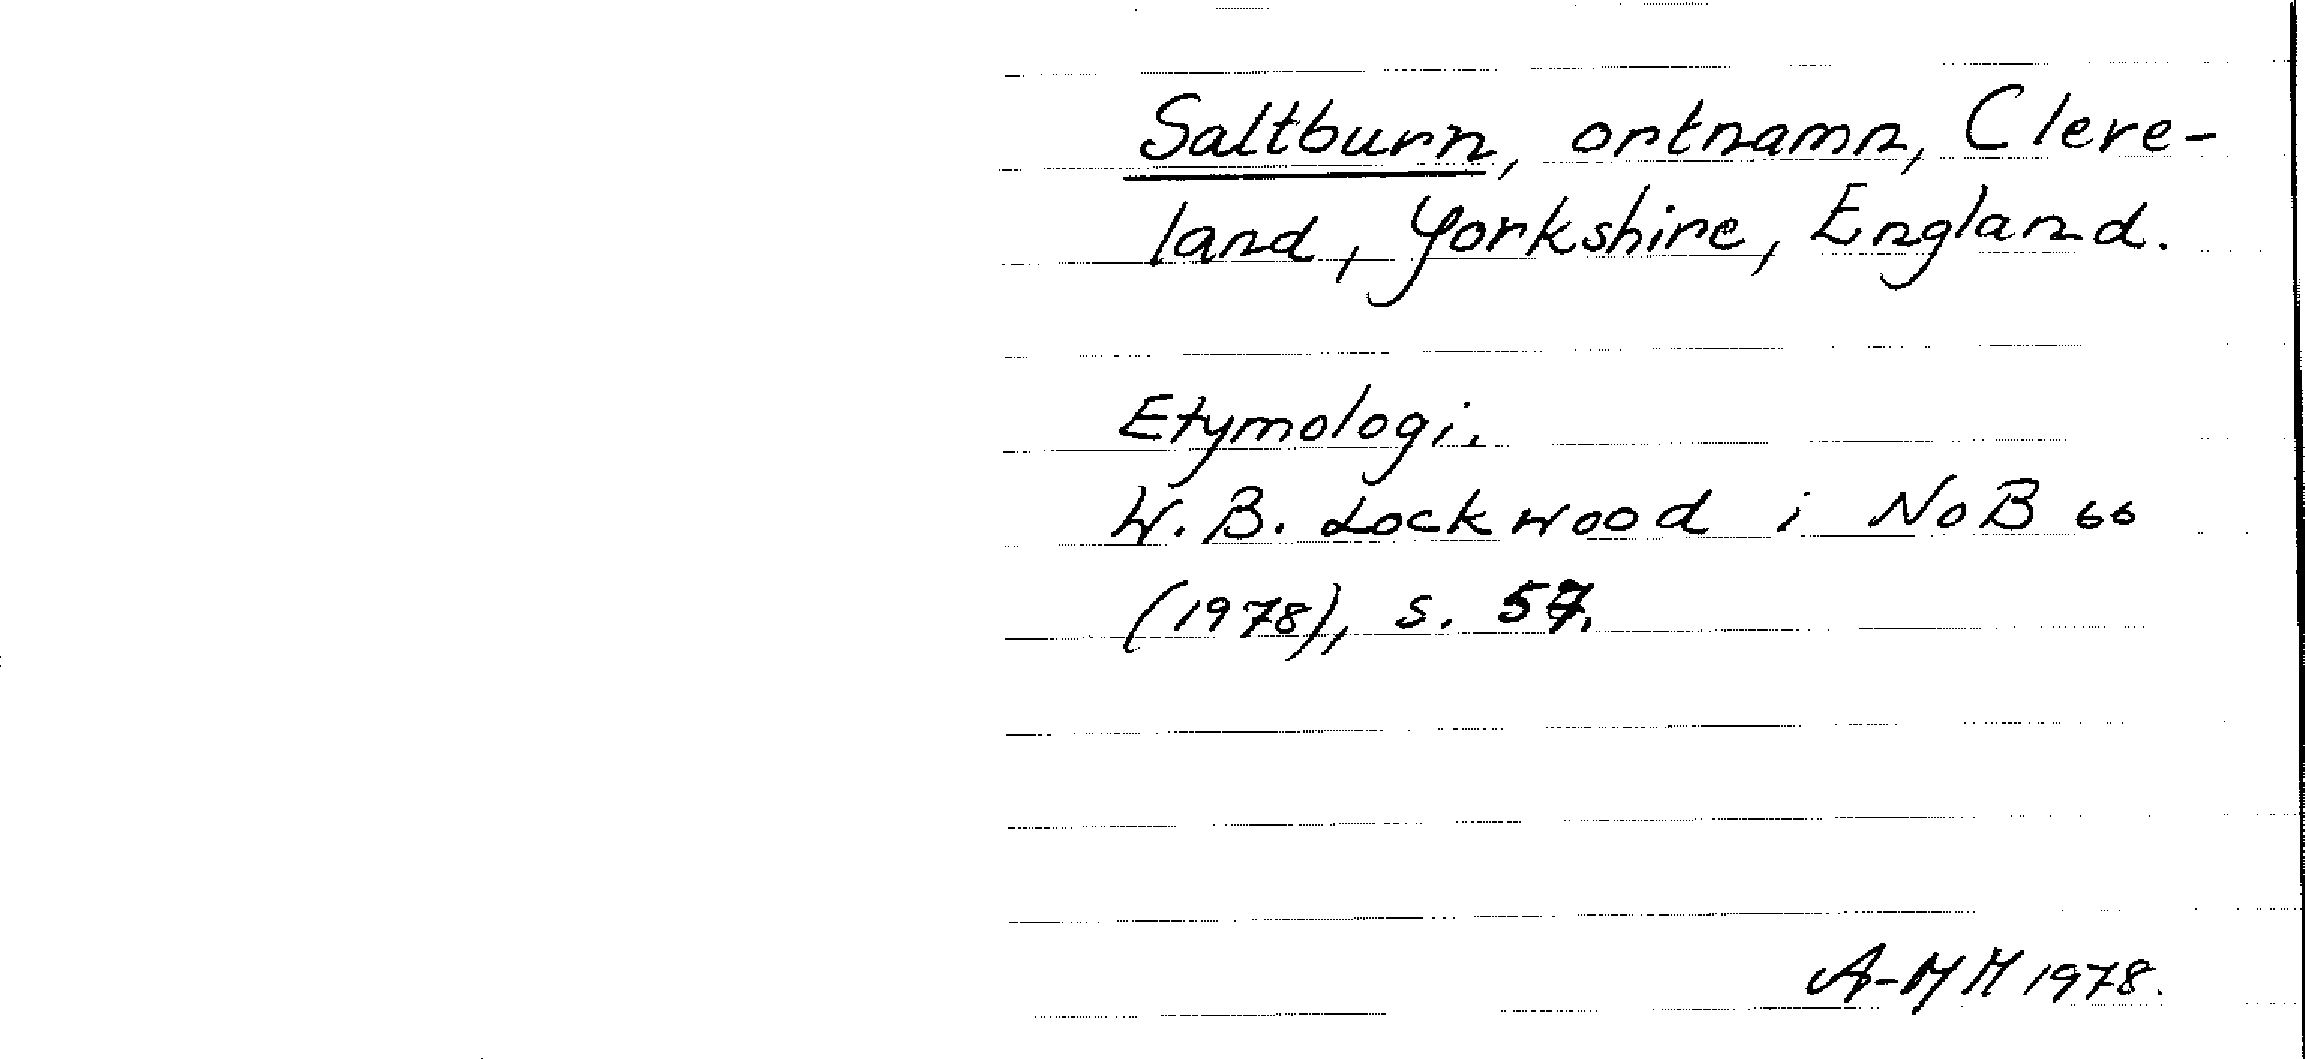 Saltburn, ortnamn, Cleve-
land, Yorkshire, England.
Etymologi.
W. B. Lockwood i NoB 66
(1978), s. 57.
A-MM 1978.